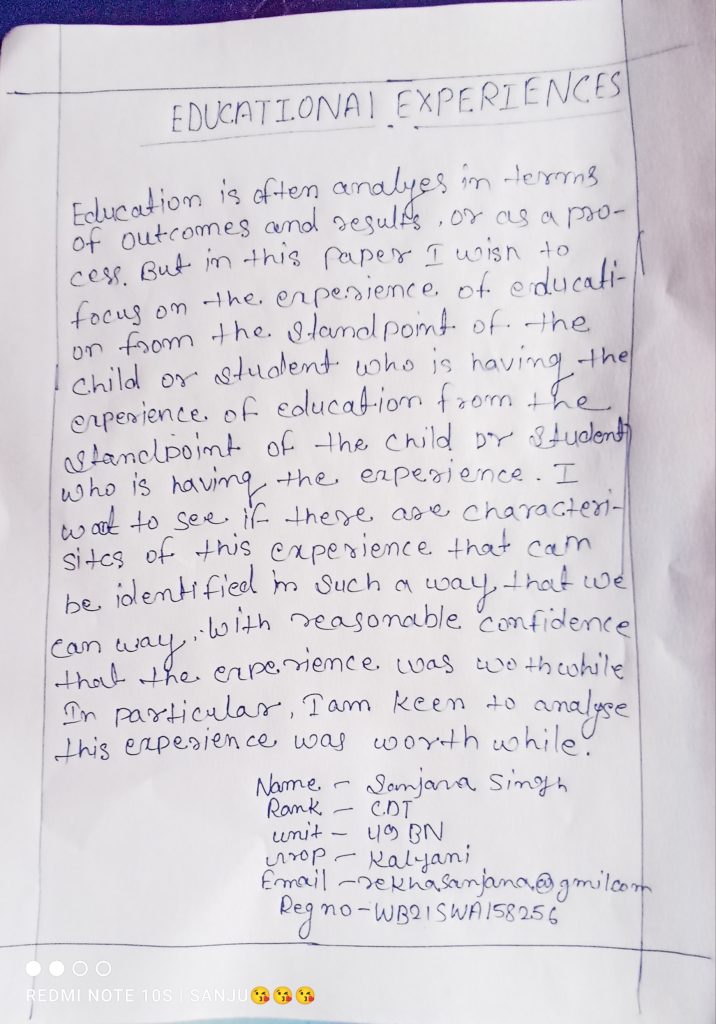 EDUCATIONAL EXPERIENCES
Education is often analyes in terms
of outcomes and results, or as a pro-
cess. But in this paper I wish to
focus on the experience of educati-
on from the standpoint of the
child or student who is having the
experience of education from the
standpoint of the child or student
who is having the experience. I
wat to see if there are characteri-
sitcs of this experience that can
be identified in such a way that we
can way, with reasonable confidence
that the experience was wothwhile
In particular, I am keen to analyse
this experience was worth while.
Name - Sanjana Singh
Rank - CDT
unit - 49 BN
Grop - Kalyani
Email - rekhasanjana@gmilcom
Reg no - WB21SWA158256
REDMI NOTE 10S | SANJU😘😘😘